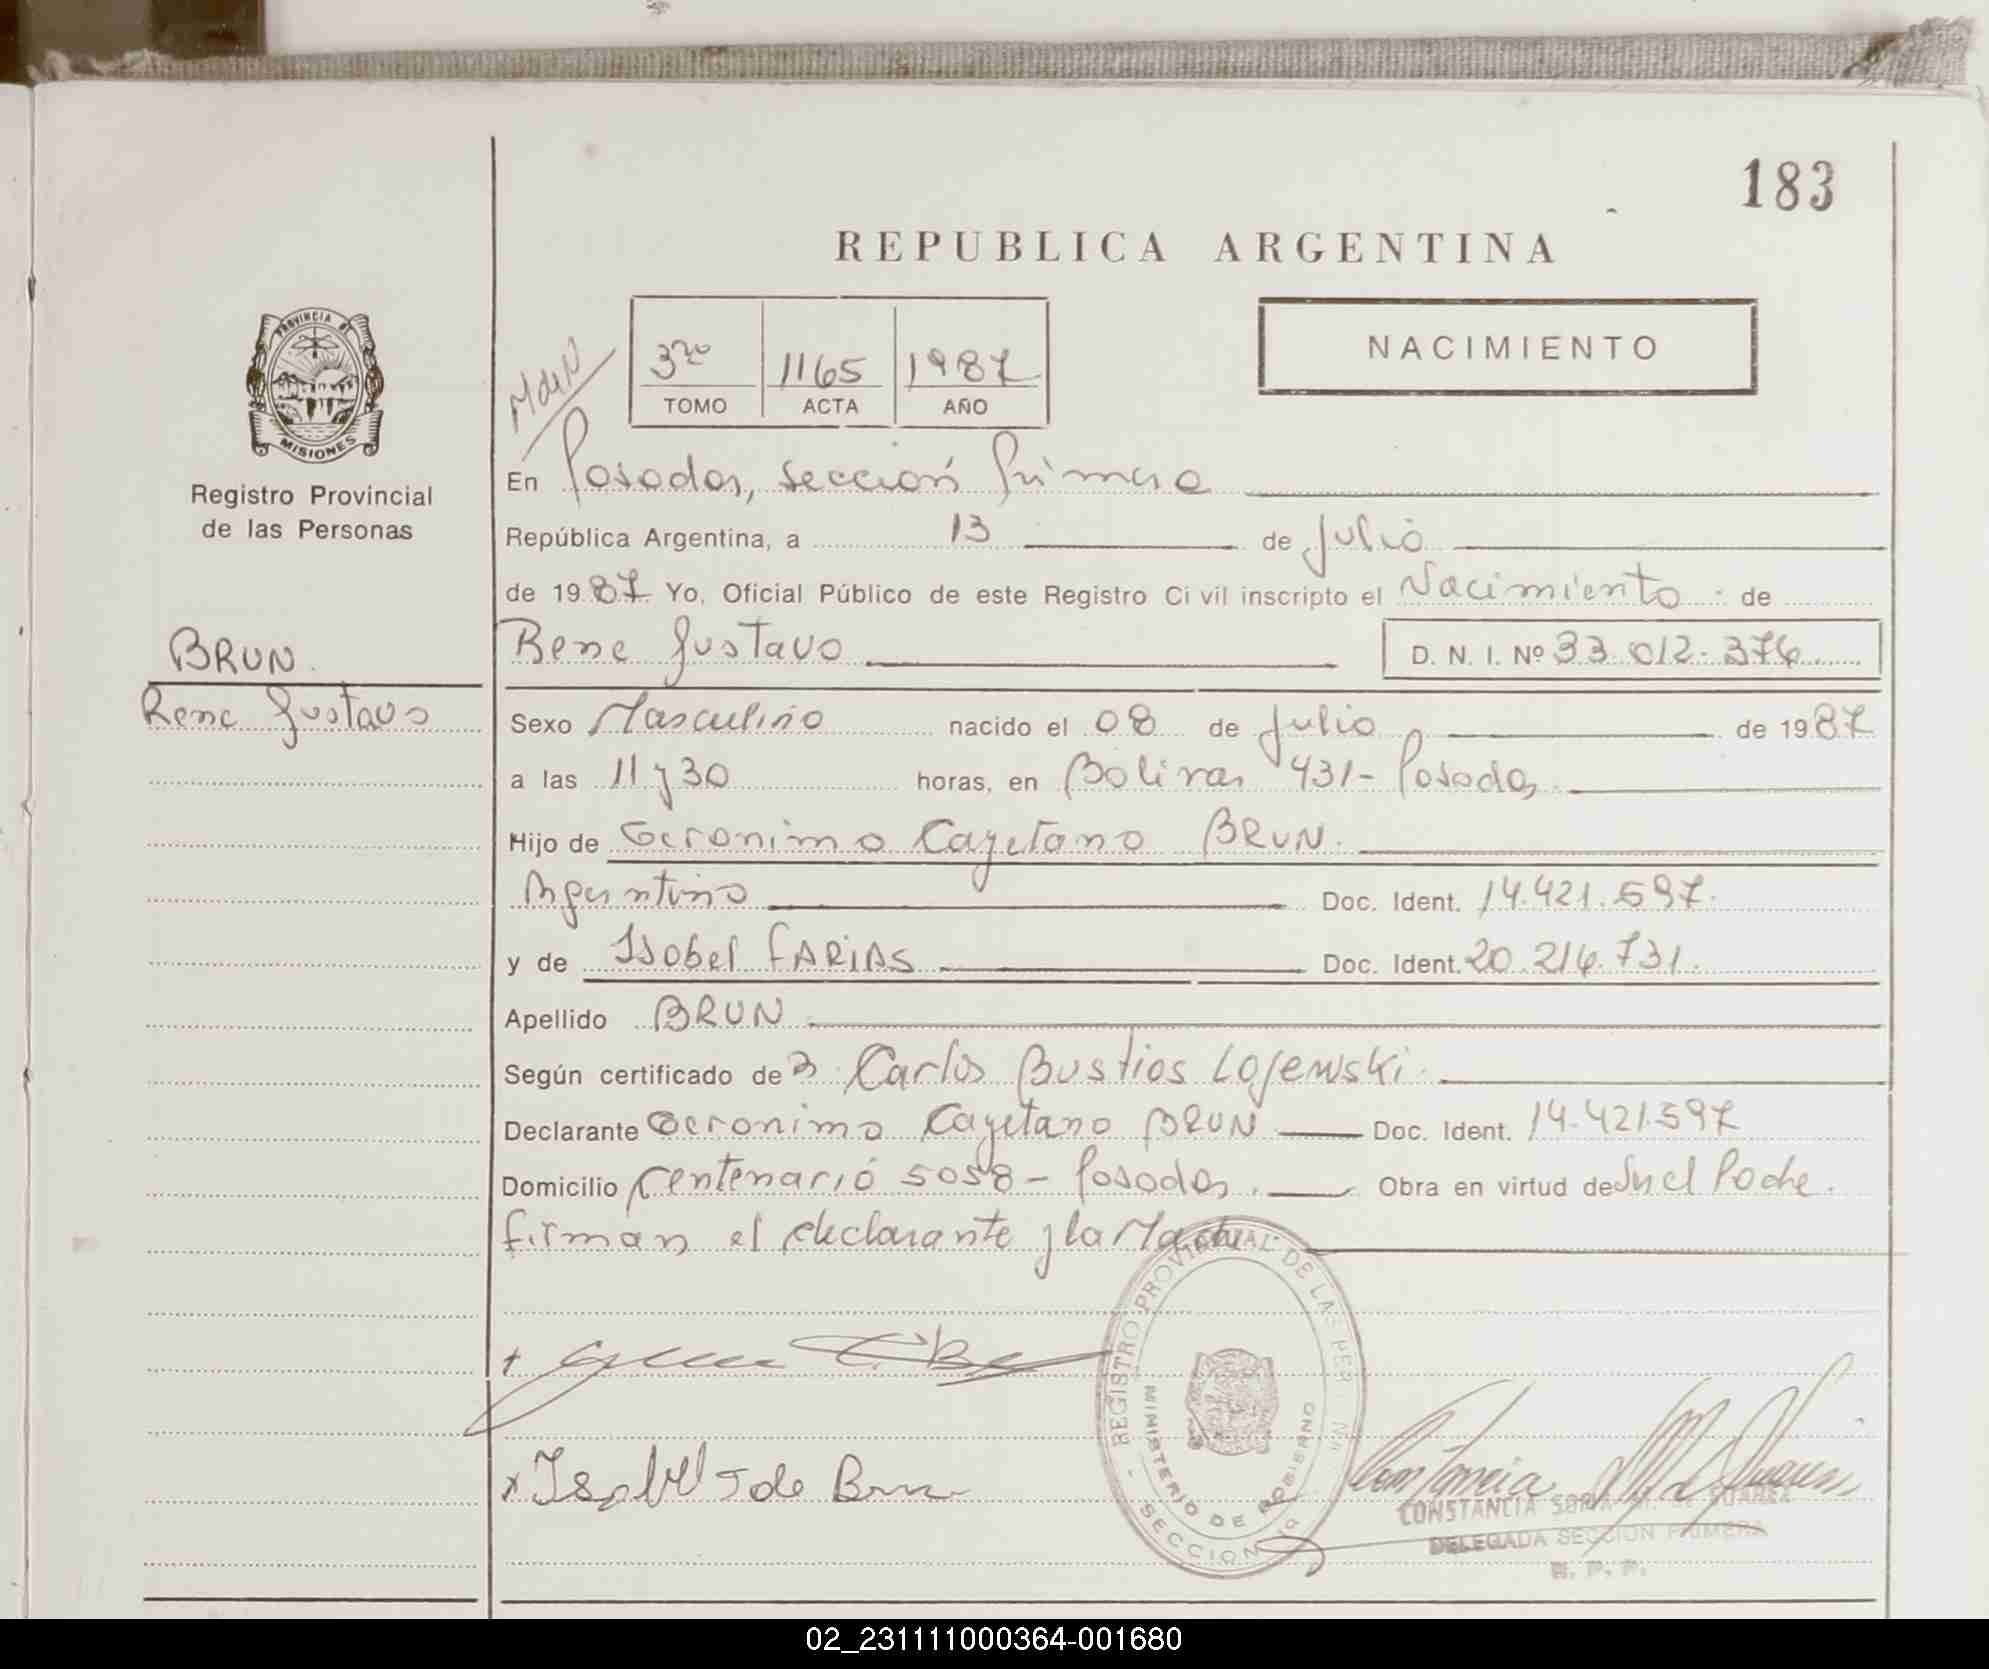 183
REPUBLICA ARGENTINA
NACIMIENTO
MdeN
3ro 1165 1987
TOMO ACTA AÑO
PROVINCIA DE
MISIONES
Registro Provincial
de las Personas
En Posadas, sección Primera
República Argentina, a 13 de Julio
de 1987 Yo, Oficial Público de este Registro Civil inscripto el Nacimiento de
BRUN.
Rene Gustavo
Rene Gustavo D. N. I. Nº 33.012.376
Sexo Masculino nacido el 08 de Julio de 1987
a las 11 y 30 horas, en Bolivar 431- Posadas
Hijo de Geronimo Cayetano BRUN.
Argentino Doc. Ident. 14.421.597.
y de Isabel FARIAS Doc. Ident. 20.216.731.
Apellido BRUN
Según certificado de Carlos Bustios Lojewski.
Declarante Geronimo Cayetano BRUN Doc. Ident. 14.421.597
Domicilio Centenario 5058 - Posadas. Obra en virtud de Su el Padre.
firman el declarante y la Madre
REGISTRO PROVINCIAL DE LAS PER
MINISTERIO DE GOBIERNO
SECCION 1a
Isabel de Brun
CONSTANCIA SORIA M. de SUAREZ
DELEGADA SECCION PRIMERA
R. P. P.
02_231111000364-001680